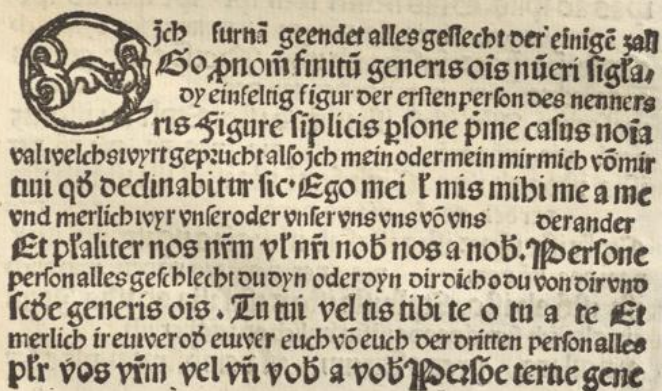 jch furnā geendet alles geslecht der einigē zall
EGo ꝓnom̄ finitū generis oīs nūeri sigła⸗
dy einfeltig figur der ersten person des nenners
ris Figure sīplicis ꝑsone pͥme casus noīa
val welchs wyrt gepraucht also jch mein oder mein mir mich vō mir
tiui qď declinabitur sic· Ego mei ł mis mihi me a me
vnd merlich wyr vnser oder vnser vns vns vō vns der ander
Et płaliter nos nr̄m vł nr̄i nob̄ nos a nob̄. Persone
person alles geschlecht du dyn oder dyn dir dich o du von dir vnd
scďe generis oīs. Tu tui vel tis tibi te o tu a te Et
merlich ir euwer od̄ euwer euch vō euch der dritten person alles
płr vos vr̄m vel vr̄i vob̄ a vob̄ Persōe tertie gene